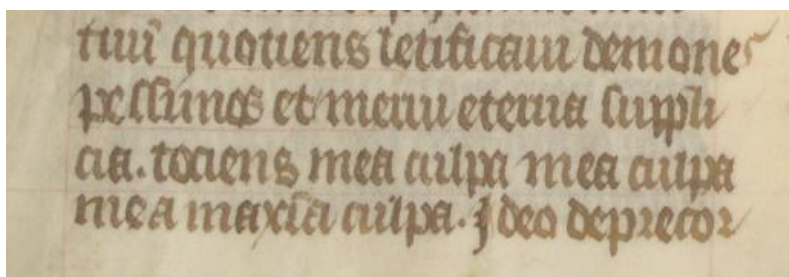 tuū quotiens letificaui demones
pessimos et merui eterna suppli
cia. tociens mea culpa mea culpa
mea maxīa culpa. Ideo deprecor